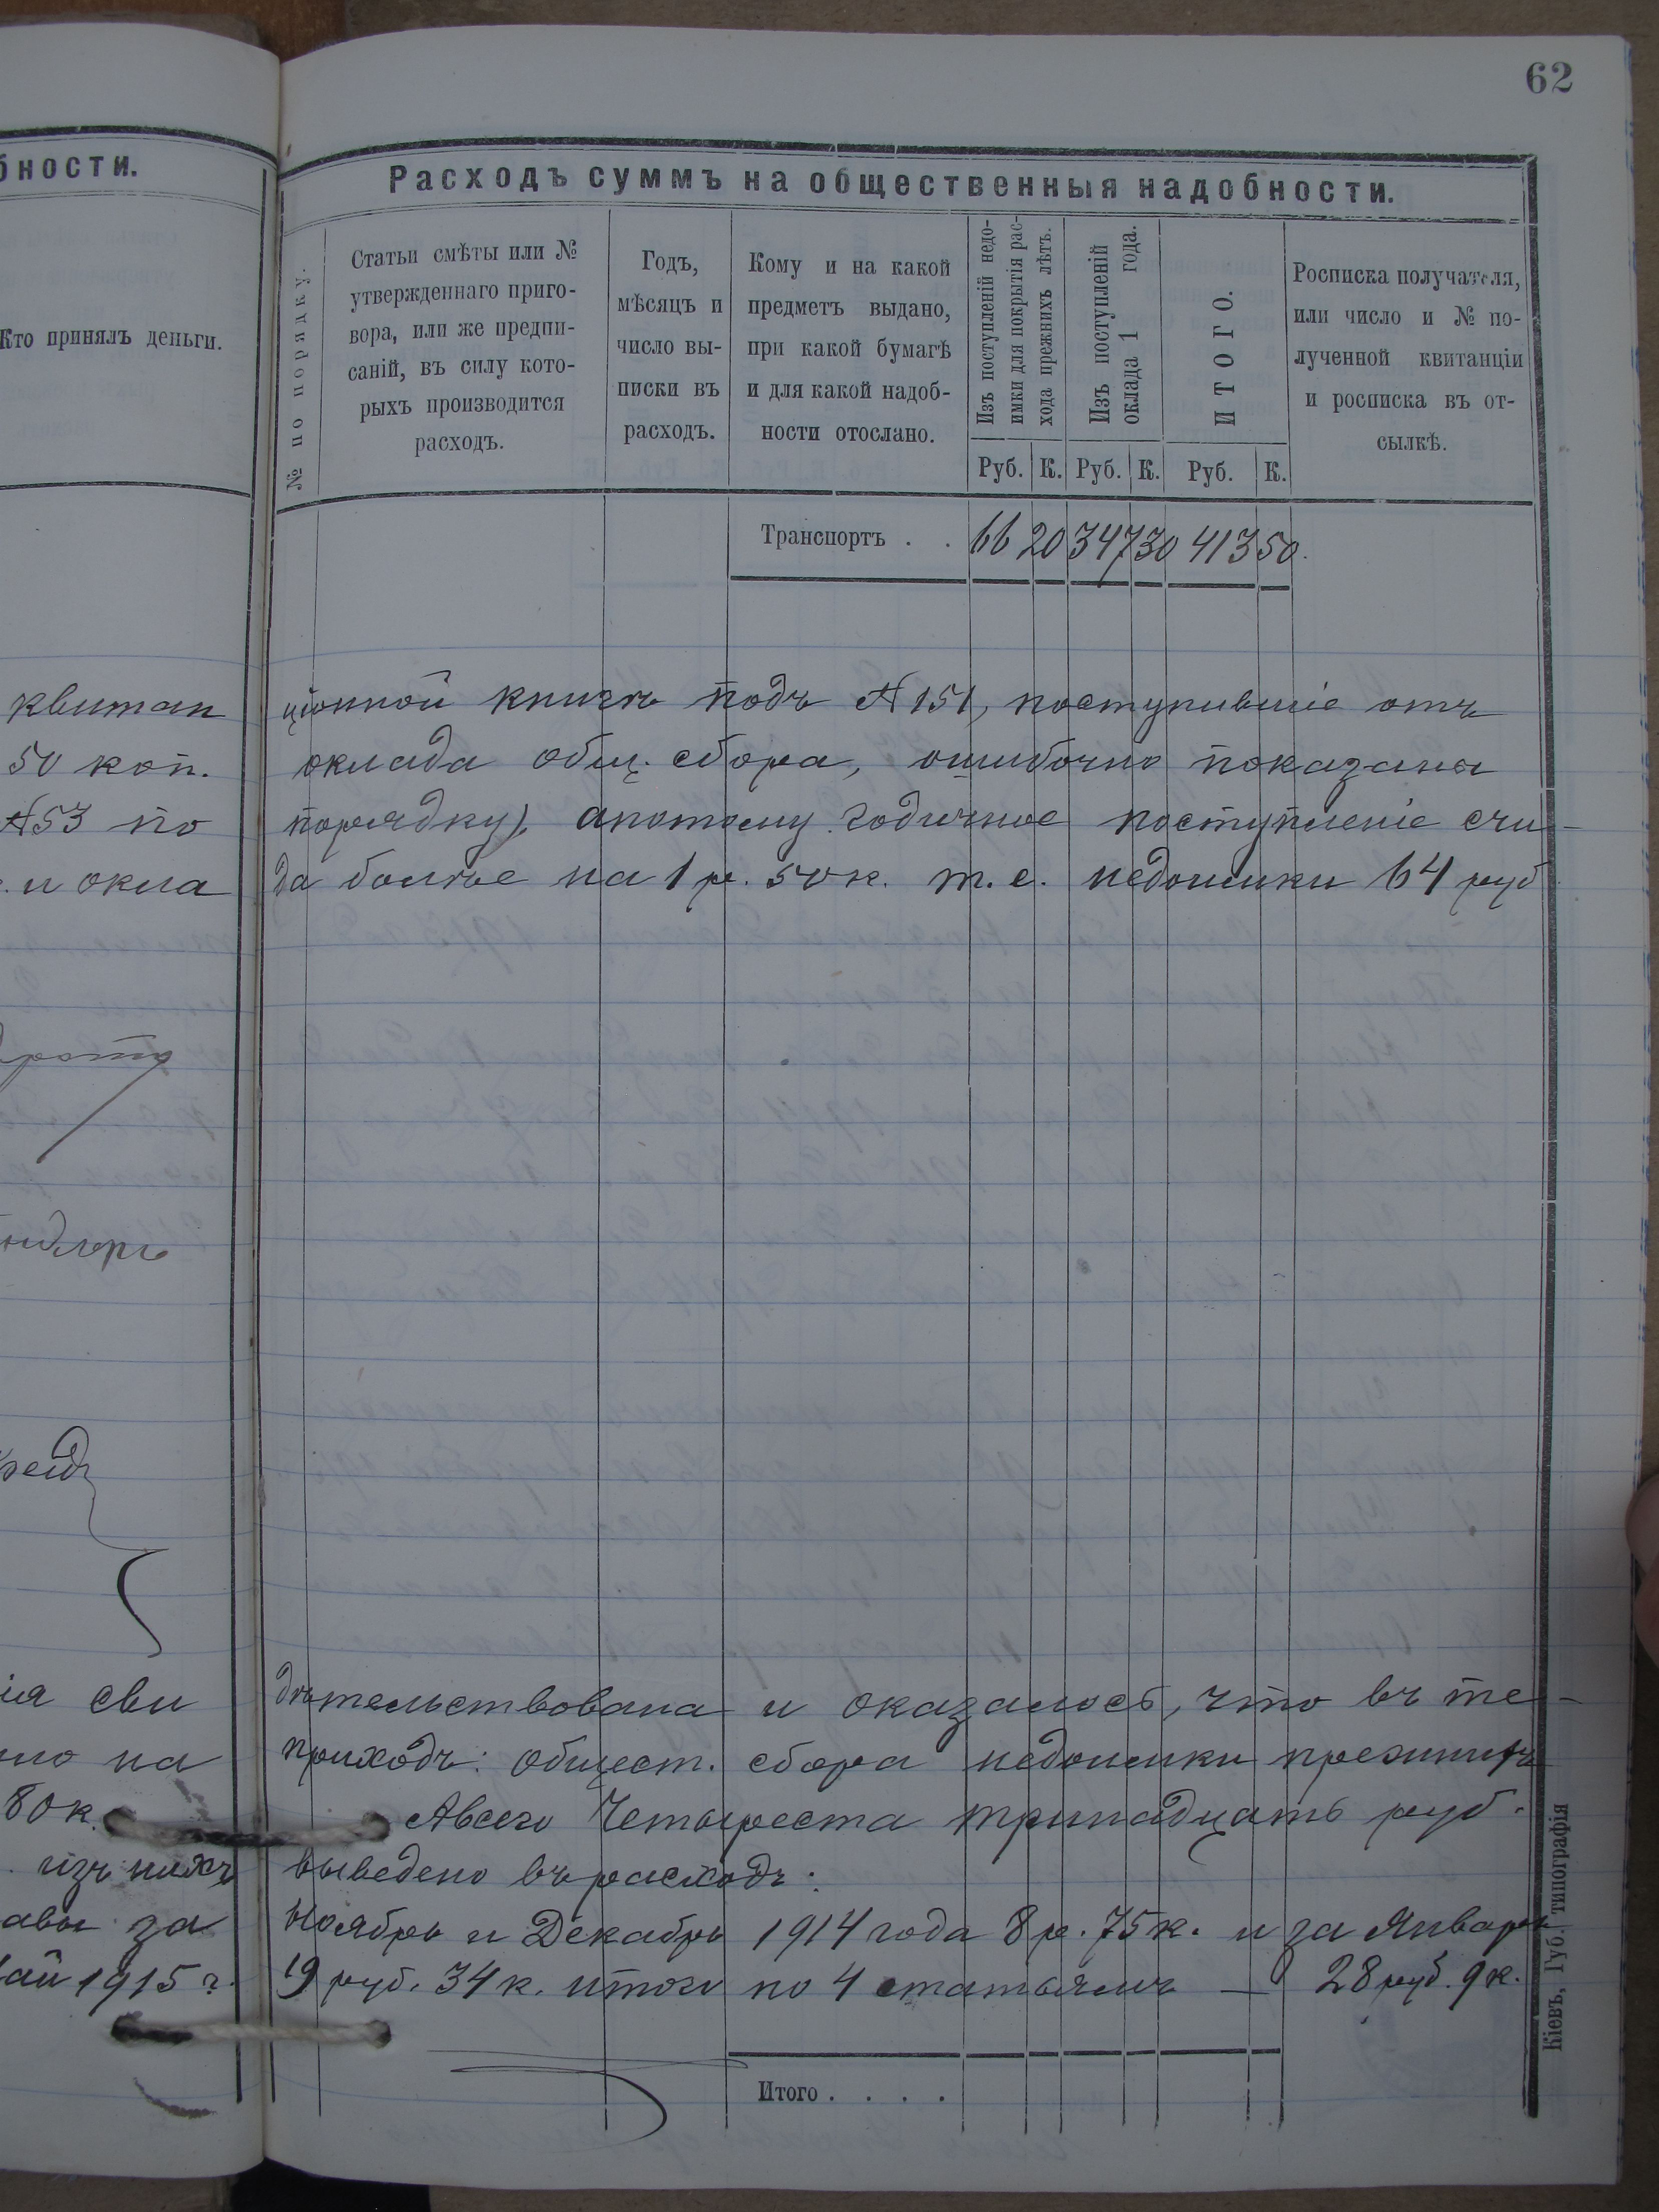 62
бности.
Кто принялъ деньги.
квитан
50 коп.
№53 по
и окла
сви
на
80 к.
изъ нихъ
за
1915 г.
Расходъ суммъ на общественныя надобности.
№ по порядку.
Статьи смѣты или №
утвержденнаго приго-
вора, или же предпи-
саній, въ силу кото-
рыхъ производится
расходъ.
Годъ,
мѣсяцъ и
число вы-
писки въ
расходъ.
Кому и на какой
предметъ выдано,
при какой бумагѣ
и для какой надоб-
ности отослано.
Изъ поступленій недо-
имки для покрытія рас-
хода прежнихъ лѣтъ.
Изъ поступленій
оклада 1 года.
ИТОГО.
Росписка получателя,
или число и № по-
лученной квитанціи
и росписка въ от-
сылкѣ.
Руб. К. Руб. К. Руб. К.
Транспортъ . . 66 20 347 30 413 50.
ціонной книгѣ подъ №151, поступившіе отъ
оклада общ. сбора, ошибочно показаны
порядку), апотому годичное поступленіе счи-
да болѣе на 1 р. 50 к. т.е. недоимки 64 руб
дѣтельствована и оказалось, что въ те-
приходъ: общест. сбора недоимки прежнихъ
Авсего Четыреста тринадцать руб.
выведено въ расходъ:
Ноябрь и Декабрь 1914 года 8 р. 75 к. и за Январь
19 руб. 34 к. итого по 4 статьямъ — 28 руб. 9 к.
Итого . . . .
Кіевъ, Губ. типографія